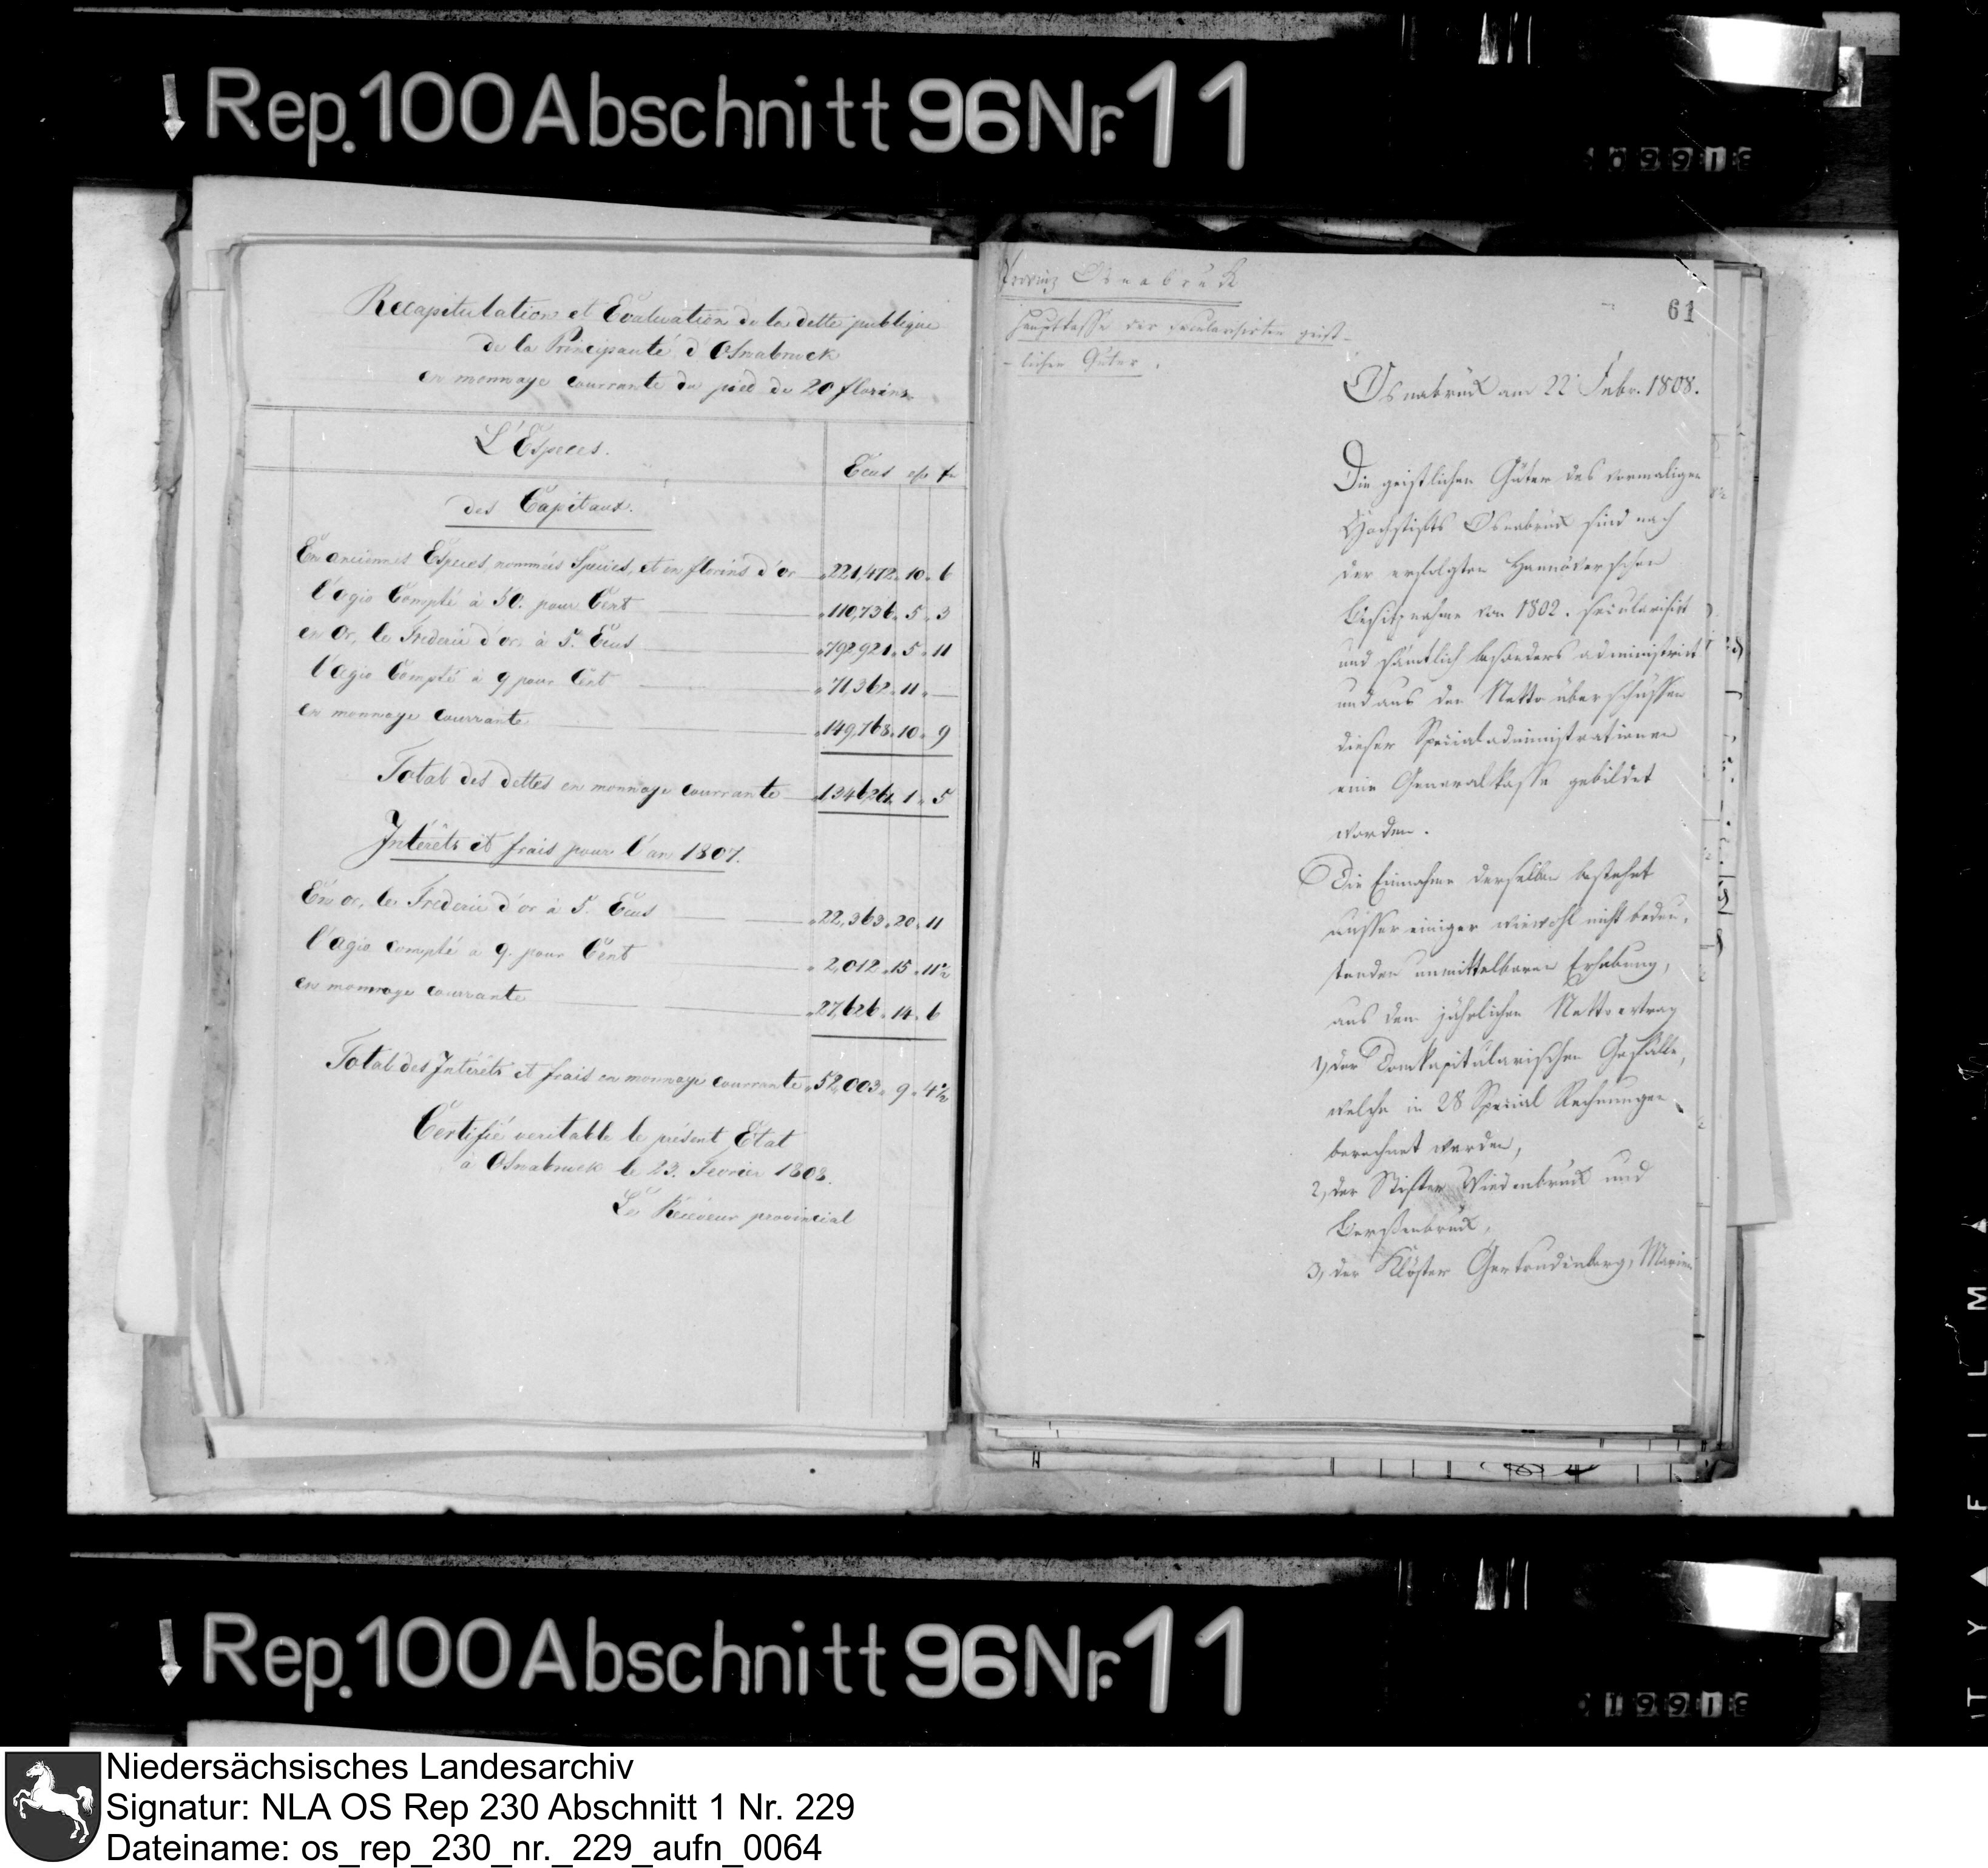 Rep. 100 Abschnitt 96 Nr. 11
Recapitulation et Evaluation de la dette publique
de la Principauté d'Osnabruck
en monnaye courrante du pied de 20 florins
L'Especes.
Ecus
des Capitaux.
En anciennes Especes, nommées Species, et en florins d'or 221,472. 10. 6
l'agio Compté à 50. pour Cent 110,736. 5. 3
en Or, le Frederic d'or à 5. Ecus 792,921. 5. 11
l'agio Compté à 9 pour Cent 71,362. 11. —
en monnaye courrante 149,768. 10. 9
Total des dettes en monnaye courrante 1346,261. 1. 5
Intérêts et frais pour l'an 1807.
En or, le Frederic d'or à 5. Ecus 22,363. 20. 11
l'agio compté à 9. pour Cent 2,012. 15. 11½
en monnaye courrante 27,626. 14. 6
Total des Intérêts et frais en monnaye courrante 52,003. 9. 4½
Certifié veritable le présent Etat
à Osnabruck le 23. Fevrier 1808.
Le Réceveur provincial
Provinz Osnabrück
Hauptkasse der secularisirten geist-
-lichen Güter.
61
Osnabrück am 22. Febr. 1808.
Die geistlichen Güter des vormaligen
Hochstifts Osnabrück sind nach
der erfolgten Hannöverschen
Besitznahme von 1802. secularisirt
und sämtlich besonders administrirt
und aus den Netto überschüssen
dieser Specialadministrationen
eine Generalkasse gebildet
worden.
Die Einnahme derselben bestehet
ausser einiger wiewohl nicht bedeu-
tenden unmittelbaren Erhebung,
aus dem jährlichen Nettoertrag
1, der Domkapitularischen Gefälle,
welche in 28 Special Rechnungen
berechnet werden,
2, der Stifter Wiedenbrück und
Bersenbrück,
3, der Klöster Gertrudenberg, Marien
Rep. 100 Abschnitt 96 Nr. 11
Niedersächsisches Landesarchiv
Signatur: NLA OS Rep 230 Abschnitt 1 Nr. 229
Dateiname: os_rep_230_nr._229_aufn_0064